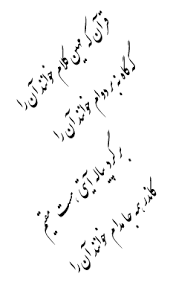 قرآن که مهین کلام خوانند آن را
گه گاه نه بر دوام خوانند آن را
بر گرد پیاله آیتی هست مقیم
کاندر همه جا مدام خوانند آن را